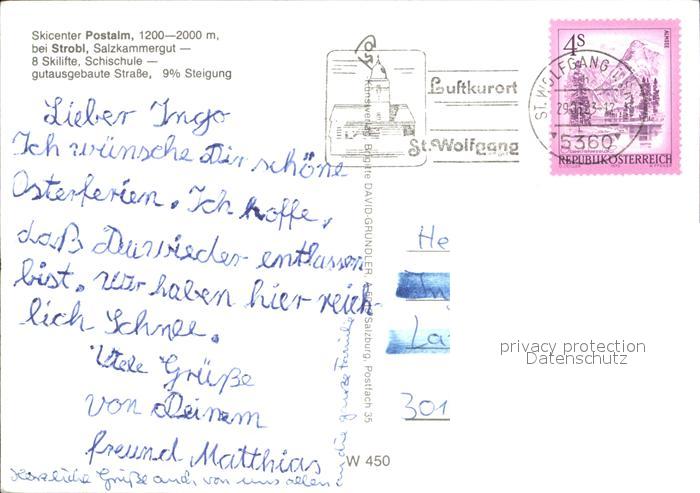 Skicenter Postalm, 1200—2000 m,
bei Strobl, Salzkammergut —
8 Skilifte, Schischule —
gutausgebaute Straße, 9% Steigung
Lieber Ingo
Ich wünsche Dir schöne
Osterferien. Ich hoffe,
daß Du wieder entlassen
bist. Wir haben hier reich-
lich Schnee.
Viele Grüße
von Deinem
freund Matthias
Herzliche Grüße auch von uns allen
an die ganze Familie
Kunstverlag Brigitte DAVID-GRÜNDLER, Salzburg, Postfach 35
W 450
Luftkurort
St. Wolfgang
ST. WOLFGANG
5360
4S
ALMSEE
REPUBLIK ÖSTERREICH
He
In
La
301
privacy protection
Datenschutz